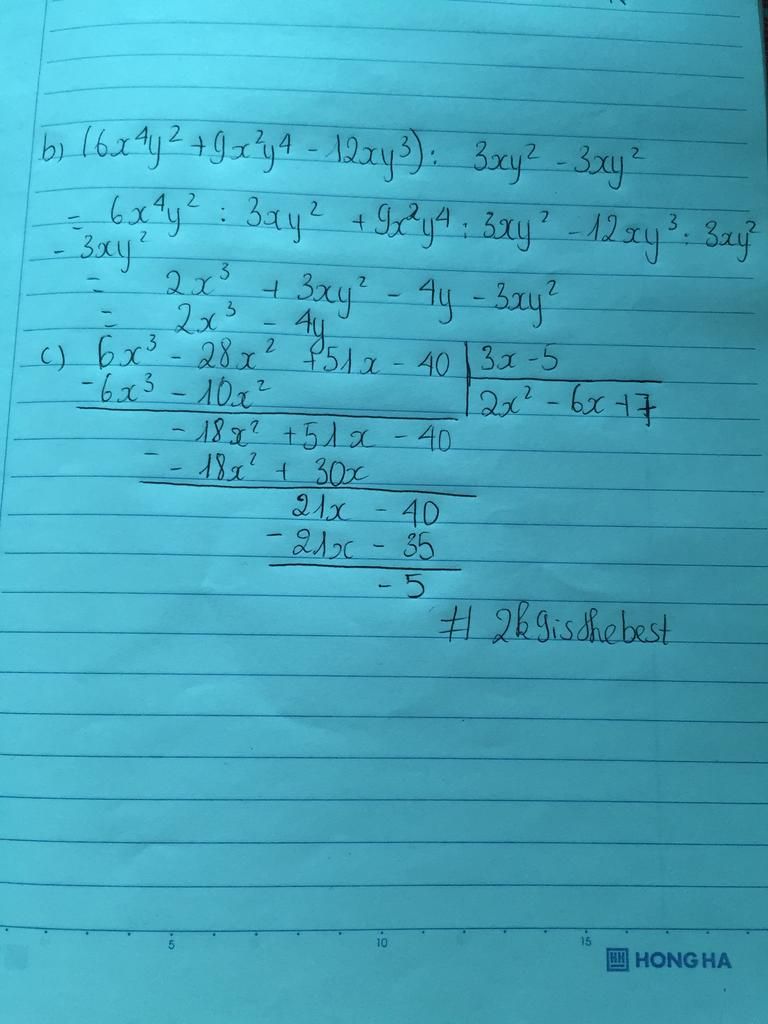 b) (6x⁴y² + 9x²y⁴ - 12xy³) : 3xy² - 3xy²
= 6x⁴y² : 3xy² + 9x²y⁴ : 3xy² - 12xy³ : 3xy²
- 3xy²
= 2x³ + 3xy² - 4y - 3xy²
= 2x³ - 4y
c) 6x³ - 28x² + 51x - 40 | 3x - 5
- 6x³ - 10x² | 2x² - 6x + 7
- 18x² + 51x - 40
- - 18x² + 30x
21x - 40
- 21x - 35
- 5
# 2k9isthebest
5 10 15
HH HONG HA